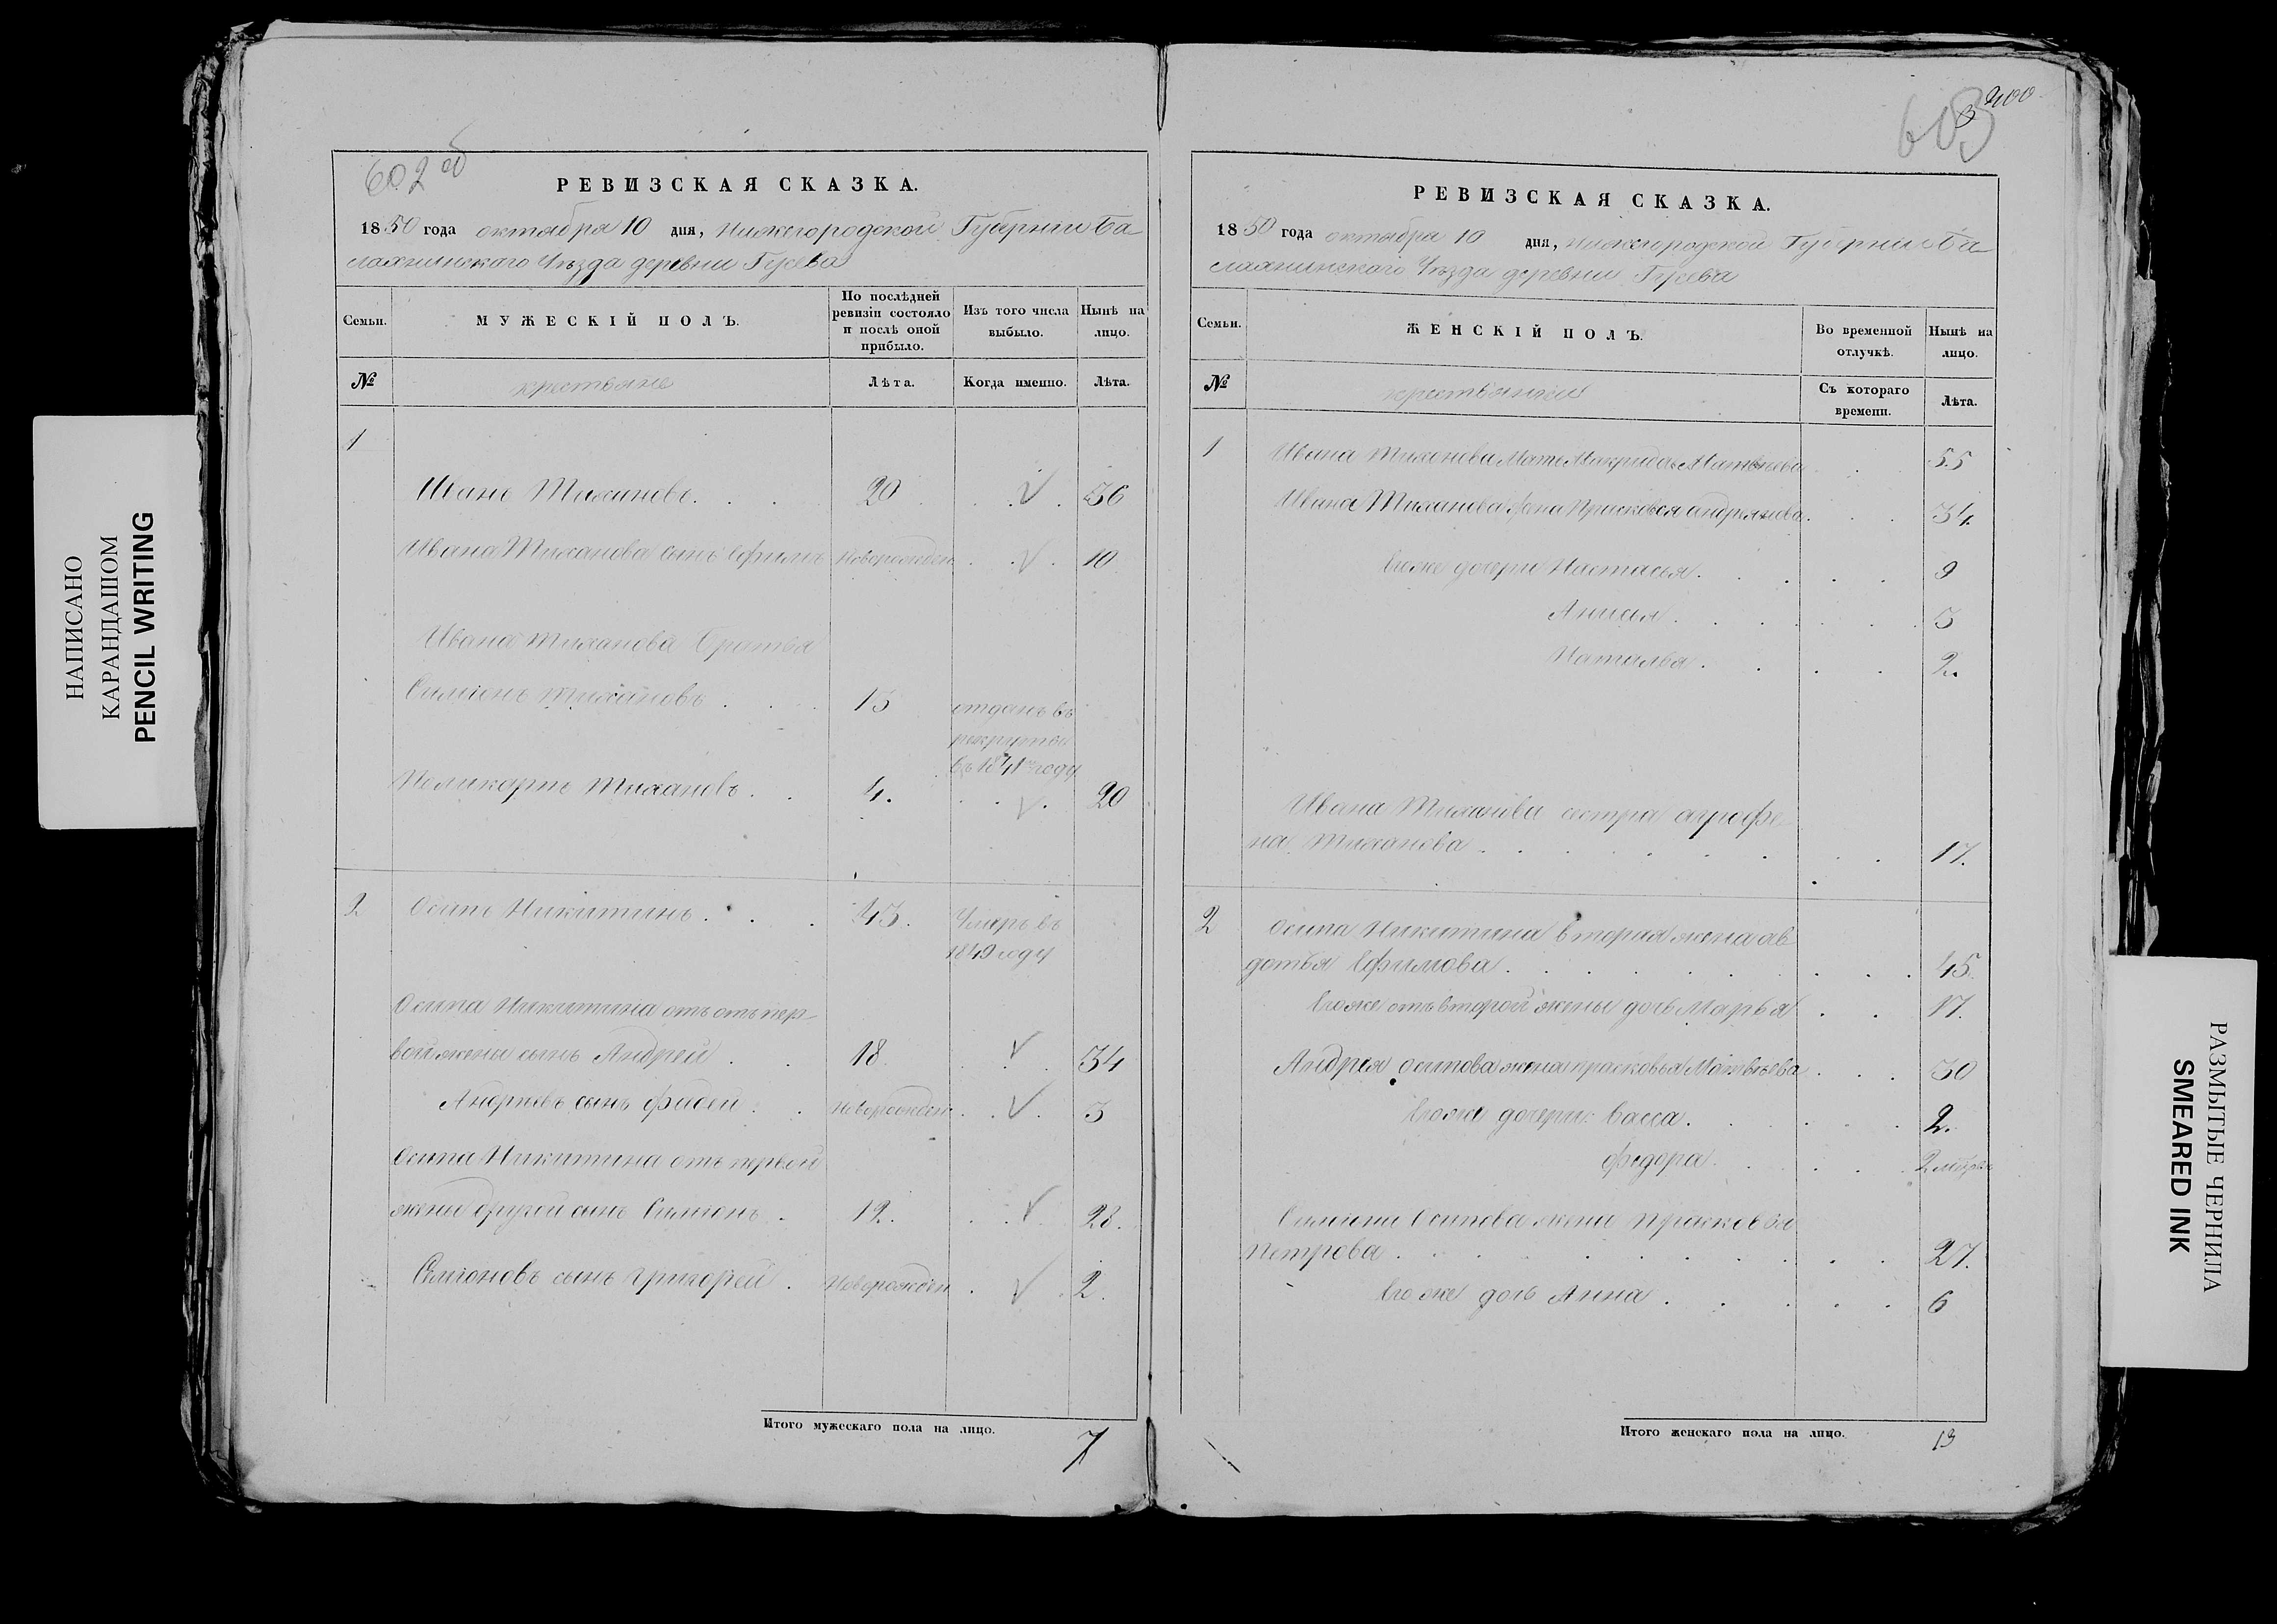 НАПИСАНО
КАРАНДАШОМ
PENCIL WRITING
602 об
РЕВИЗСКАЯ СКАЗКА.
1850 года октября 10 дня, Нижегородской Губернии Ба
лахнинскаго Уѣзда деревни Гусева
Семьи.
МУЖЕСКІЙ ПОЛЪ.
По послѣдней ревизіи состояло и послѣ оной прибыло.
Изъ того числа выбыло.
Нынѣ на лицо.
№
крестьяне
Лѣта.
Когда именно.
Лѣта.
1
Иванъ Тихановъ. 20 36
Ивана Тиханова сынъ Ефимъ Новорожден 10
Ивана Тиханова братья
Симіонъ Тихановъ 15 отданъ въ
рекруты
въ 1841 году
Поликарпъ Тихановъ. 4. 20
2 Осипъ Никитинъ. 43. Умеръ въ
1849 году
Осипа Никитина отъ отъ пер-
вой жены сынъ Андрей 18 34
Андреевъ сынъ Фадей Новорожден 3
Осипа Никитина отъ первой
жены другой сынъ Симіонъ 12. 28.
Симіоновъ сынъ Григорей Новорожден 2.
Итого мужескаго пола на лицо. 7
400
603
РЕВИЗСКАЯ СКАЗКА.
1850 года октября 10 дня, Нижегородской Губерніи Ба
лахнинскаго Уѣзда деревни Гусева
Семьи.
ЖЕНСКІЙ ПОЛЪ.
Во временной отлучкѣ.
Нынѣ на лицо.
№
крестьянки
Съ котораго времени.
Лѣта.
1 Ивана Тиханова Мать Макрида Матвѣева 55
Ивана Тиханова жена Прасковья андреянова. 34.
Его же дочери Настасья. 9
Анисья. 5
Наталья. 2.
Ивана Тиханова сестра аграфе-
на Тиханова 17.
2 Осипа Никитина вторая жена ав
дотья Ефимова. 45.
Его же отъ второй жены дочь Марья 17.
Андрея осипова жена прасковья Матвѣева 30
Его же дочери: Васса. 2.
Федора. 2 мѣсяц
Симіона Осипова жена Прасковья
Петрова. 27.
Его же дочь Анна. 6
Итого женскаго пола на лицо. 13
РАЗМЫТЫЕ ЧЕРНИЛА
SMEARED INK